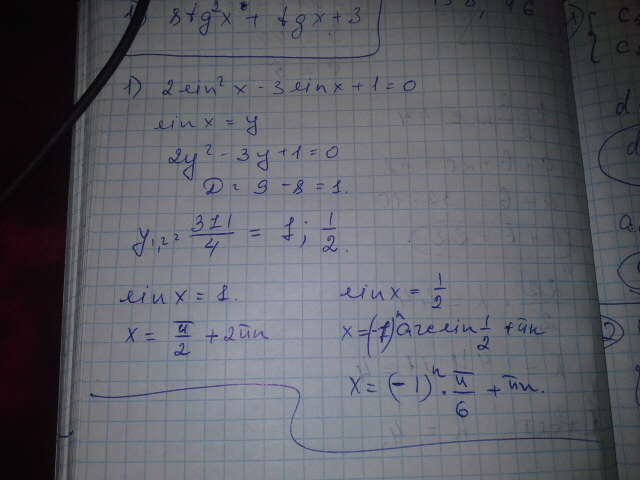 tg²x + tgx + 3
1) 2sin²x - 3sinx + 1 = 0
sinx = y
2y² - 3y + 1 = 0
D = 9 - 8 = 1.
y₁,₂ = 3±1/4 = 1; 1/2.
sinx = 1.
x = π/2 + 2πn
sinx = 1/2
x = (-1)ⁿ arcsin 1/2 + πn
x = (-1)ⁿ · π/6 + πn.